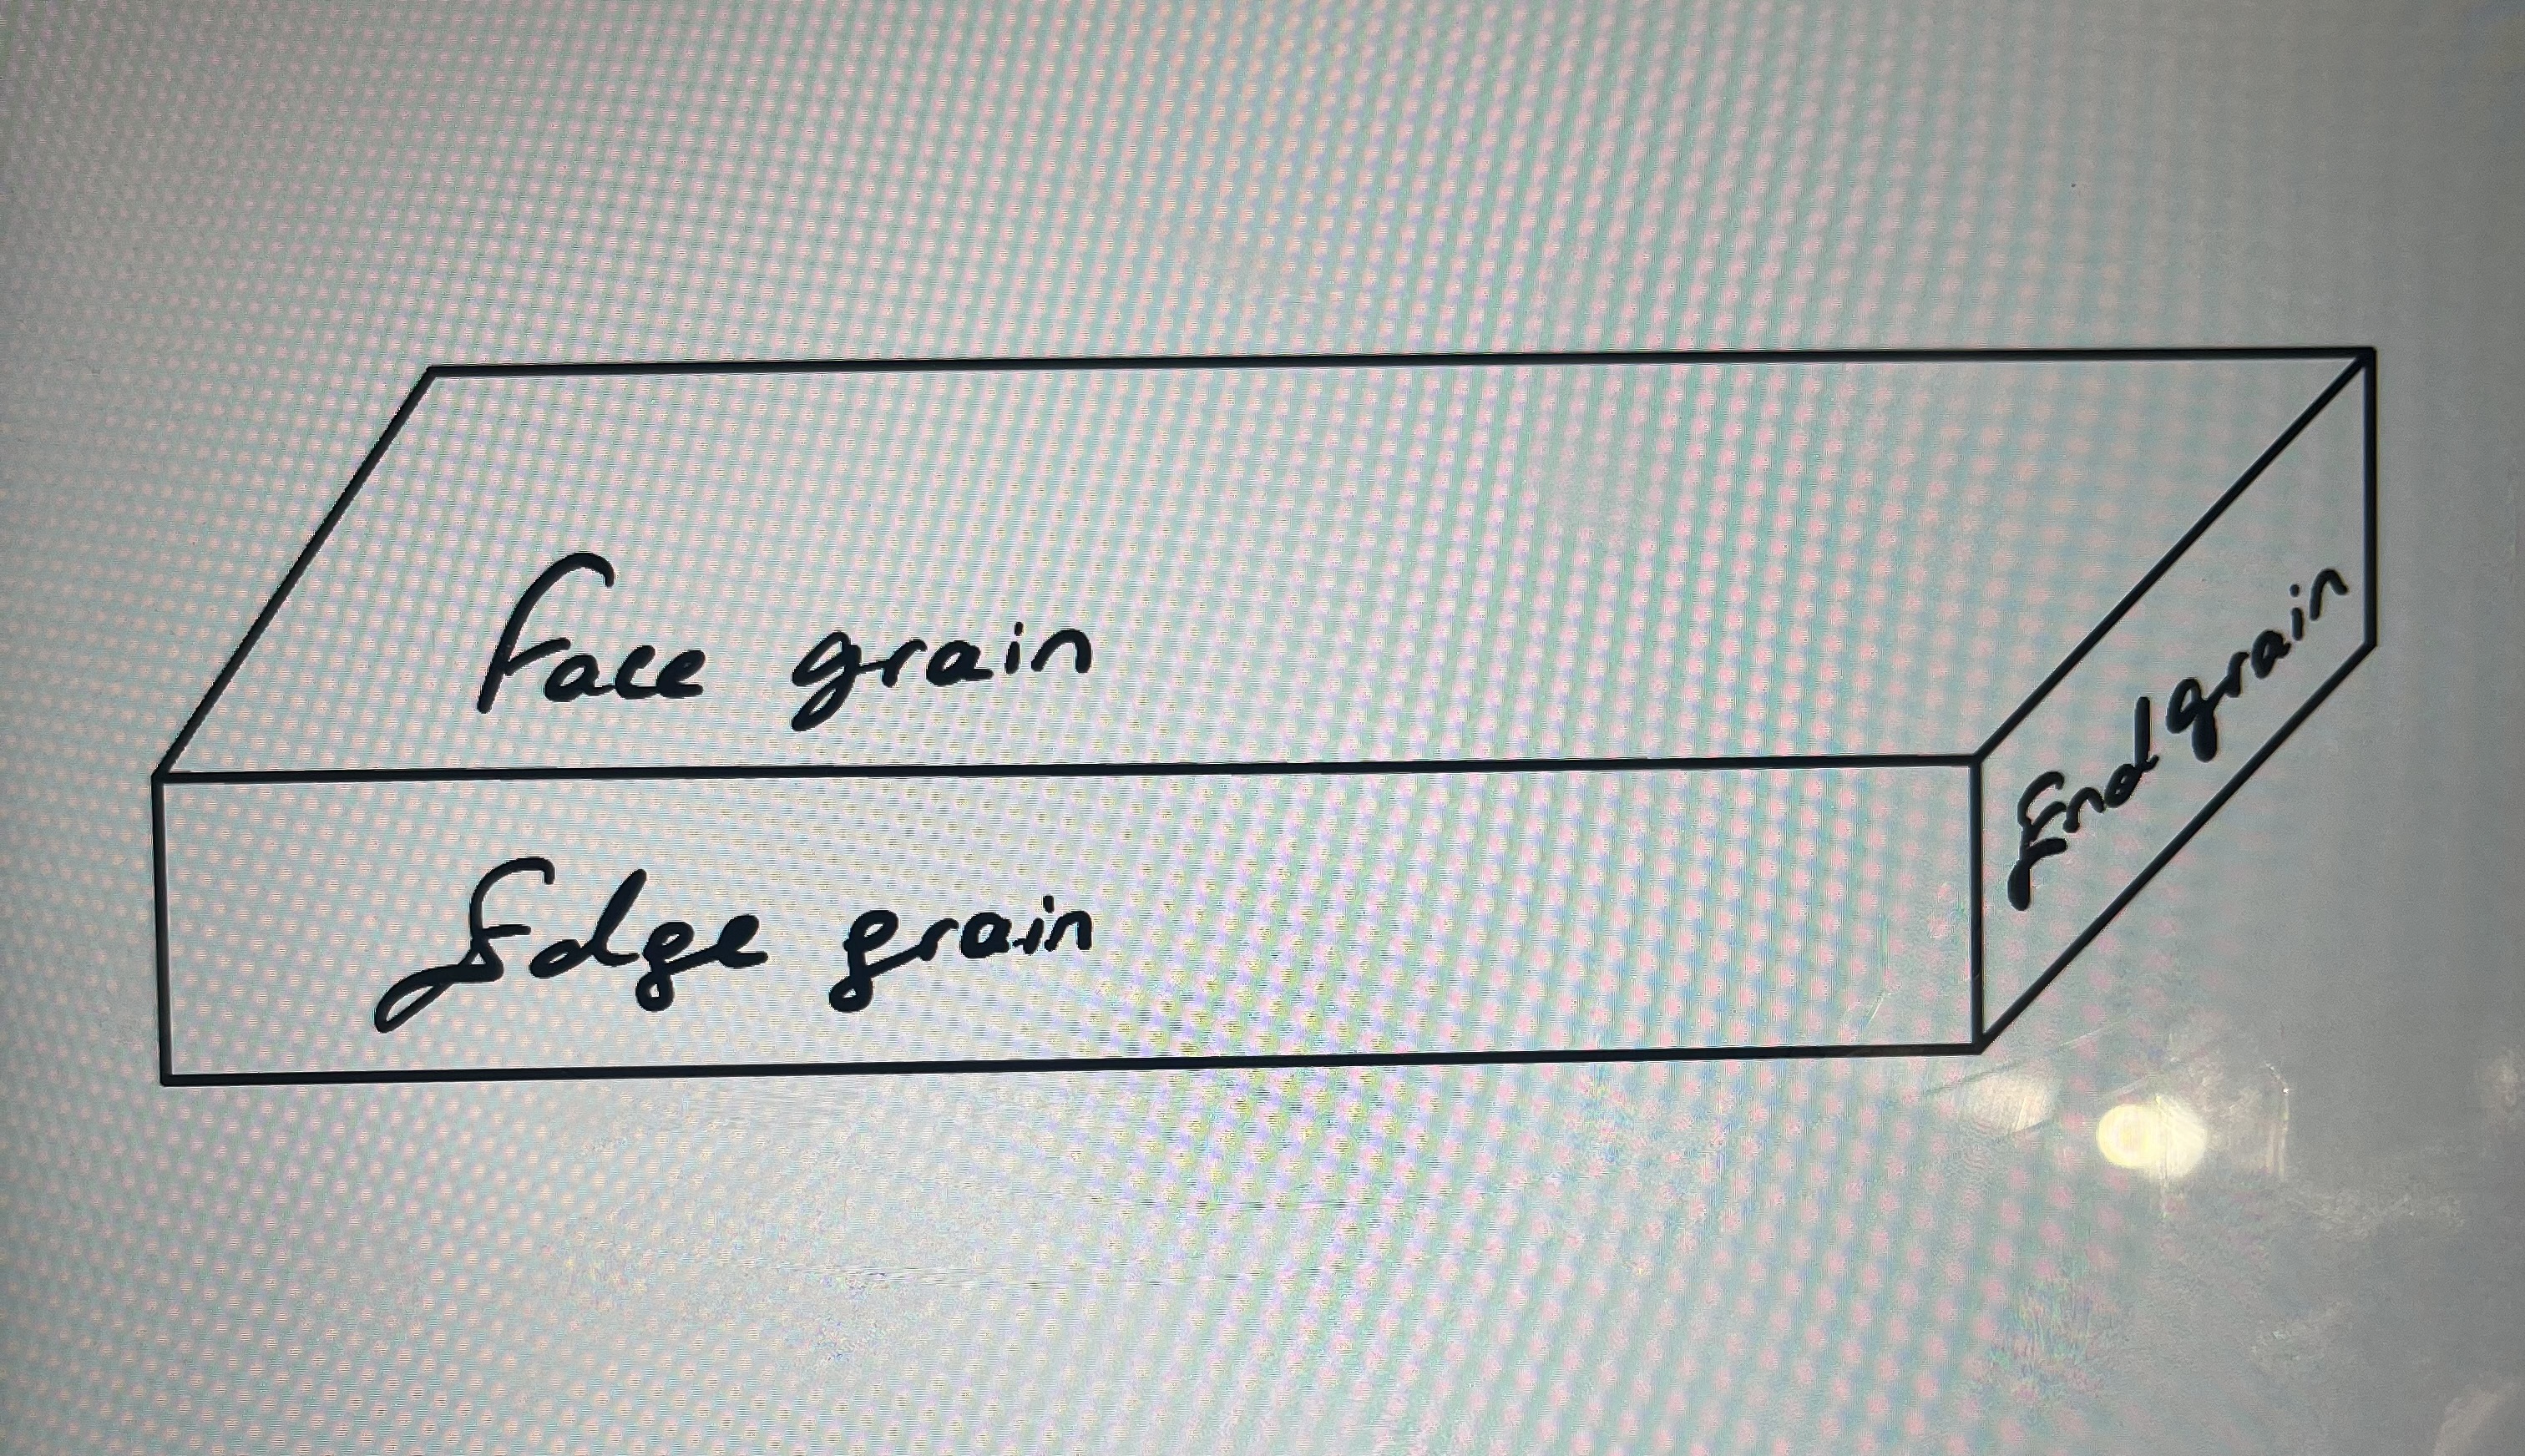 Face grain
Edge grain
End grain